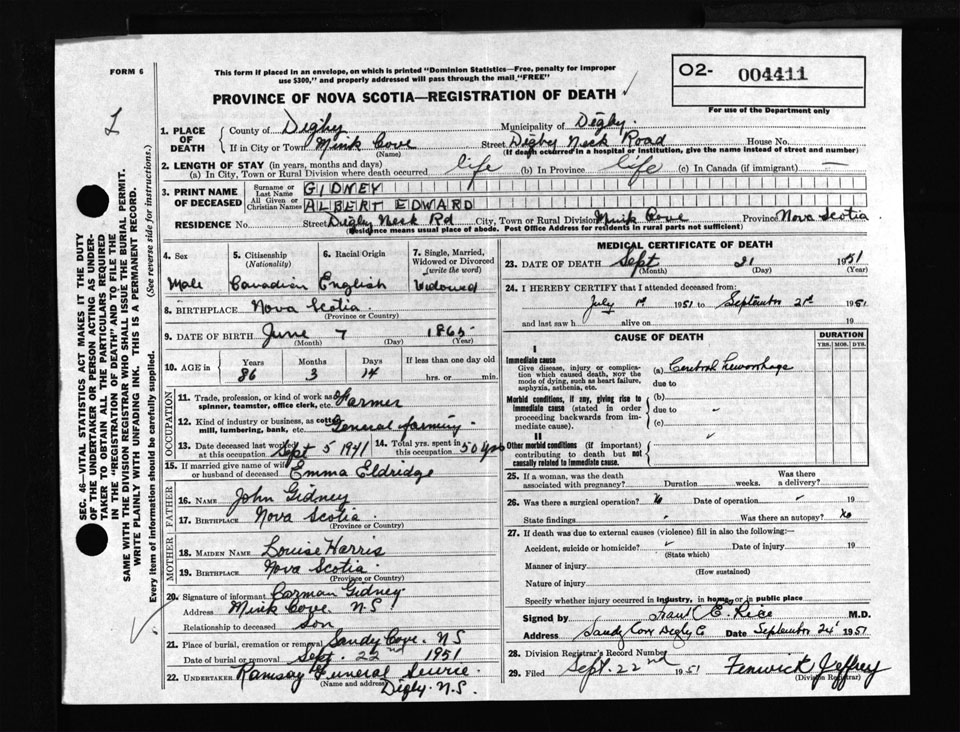 FORM 6
This form if placed in an envelope, on which is printed "Dominion Statistics—Free, penalty for improper
use $300," and properly addressed will pass through the mail "FREE"
O2- 004411
For use of the Department only
PROVINCE OF NOVA SCOTIA—REGISTRATION OF DEATH
1. PLACE OF DEATH
County of Digby Municipality of Digby.
If in City or Town Mink Cove Street Digby Neck Road House No.
(Name) (If death occurred in a hospital or institution, give the name instead of street and number)
2. LENGTH OF STAY (in years, months and days)
(a) In City, Town or Rural Division where death occurred life (b) In Province life (c) In Canada (if immigrant) —
3. PRINT NAME OF DECEASED
Surname or Last Name GIDNEY
All Given or Christian Names ALBERT EDWARD
RESIDENCE No. Street Digby Neck Rd City, Town or Rural Division Mink Cove Province Nova Scotia
(Residence means usual place of abode. Post Office Address for residents in rural parts not sufficient)
4. Sex
Male
5. Citizenship (Nationality)
Canadian
6. Racial Origin
English
7. Single, Married, Widowed or Divorced (write the word)
Widowed
8. BIRTHPLACE Nova Scotia
(Province or Country)
9. DATE OF BIRTH June 7 1865
(Month) (Day) (Year)
10. AGE in Years Months Days If less than one day old
86 3 14 hrs. or min.
OCCUPATION
11. Trade, profession, or kind of work as spinner, teamster, office clerk, etc. Farmer
12. Kind of industry or business, as cotton mill, lumbering, bank, etc. General farming
13. Date deceased last worked at this occupation Sept 5 1941 14. Total yrs. spent in this occupation 50 yrs
15. If married give name of wife or husband of deceased Emma Eldridge
FATHER
16. NAME John Gidney
17. BIRTHPLACE Nova Scotia
(Province or Country)
MOTHER
18. MAIDEN NAME Louise Harris
19. BIRTHPLACE Nova Scotia
(Province or Country)
20. Signature of informant Carman Gidney
Address Mink Cove N.S
Relationship to deceased Son
21. Place of burial, cremation or removal Sandy Cove. N S
Date of burial or removal Sept. 22nd 1951
22. UNDERTAKER Ramsay Funeral Service
(Name and address) Digby. N.S.
MEDICAL CERTIFICATE OF DEATH
23. DATE OF DEATH Sept 21 1951
(Month) (Day) (Year)
24. I HEREBY CERTIFY that I attended deceased from:
July 1st 1951 to September 21st 1951
and last saw h alive on 19
CAUSE OF DEATH DURATION
YRS. MOS. DYS.
I
Immediate cause
Give disease, injury or complication which caused death, NOT the mode of dying, such as heart failure, asphyxia, asthenia, etc.
(a) Cerebral hemorrhage
due to
Morbid conditions, if any, giving rise to immediate cause (stated in order proceeding backwards from immediate cause).
(b)
due to
(c)
II
Other morbid conditions (if important) contributing to death but not causally related to immediate cause.
25. If a woman, was the death associated with pregnancy? Duration weeks. Was there a delivery?
26. Was there a surgical operation? No Date of operation 19
State findings Was there an autopsy? No
27. If death was due to external causes (violence) fill in also the following:—
Accident, suicide or homicide? Date of injury 19
(State which)
Manner of injury
(How sustained)
Nature of injury
Specify whether injury occurred in industry, in home, or in public place
Signed by E. Rice M.D.
Address Sandy Cove Digby Date September 24 1951
28. Division Registrar's Record Number
29. Filed Sept. 22nd 1951 Fenwick Jeffrey
(Division Registrar)
SEC. 46—VITAL STATISTICS ACT MAKES IT THE DUTY
OF THE UNDERTAKER OR PERSON ACTING AS UNDER-
TAKER TO OBTAIN ALL THE PARTICULARS REQUIRED
IN THE "REGISTRATION OF DEATH" AND TO FILE THE
SAME WITH THE DIVISION REGISTRAR WHO SHALL ISSUE THE BURIAL PERMIT.
WRITE PLAINLY WITH UNFADING INK. THIS IS A PERMANENT RECORD.
Every item of information should be carefully supplied. (See reverse side for instructions.)